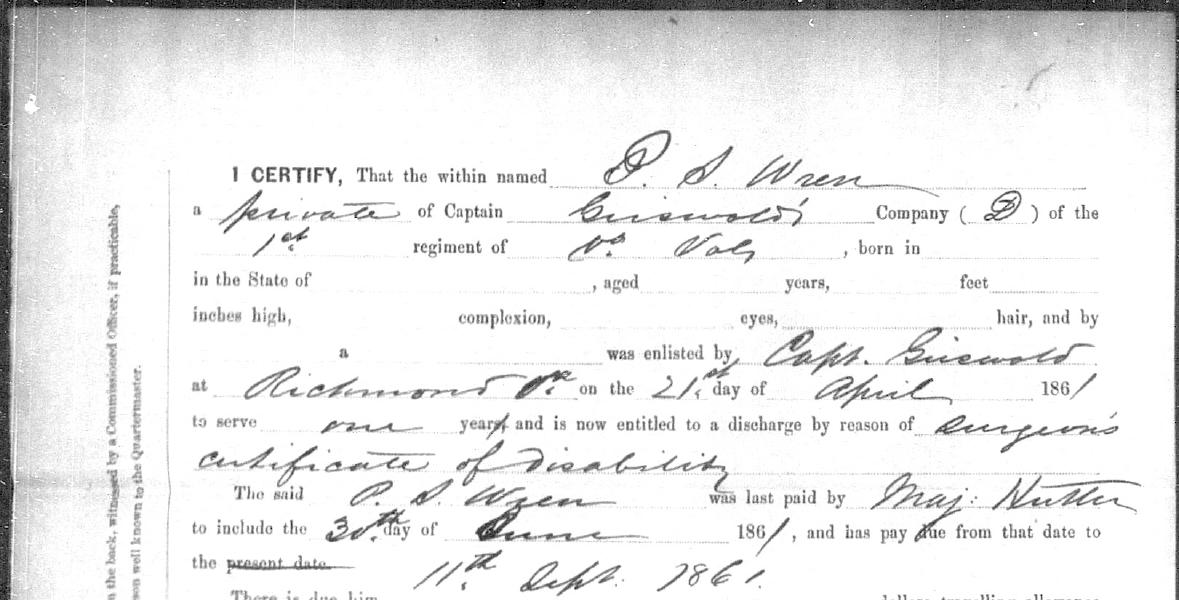 I CERTIFY, That the within named P. S. Wren
a private of Captain Griswold's Company ( D ) of the
1st regiment of Va Vols , born in
in the State of , aged years, feet
inches high, complexion, eyes, hair, and by
a was enlisted by Capt. Griswold
at Richmond Va on the 21st day of April 1861
to serve one year and is now entitled to a discharge by reason of Surgeon's
certificate of disability
The said P. S. Wren was last paid by Maj:
to include the 30th day of June 1861 , and has pay due from that date to
the present date 11th Sept. 1861.
There is due him dollars travelling allowance
n the back, witnessed by a Commissioned Officer, if practicable,
son well known to the Quartermaster.